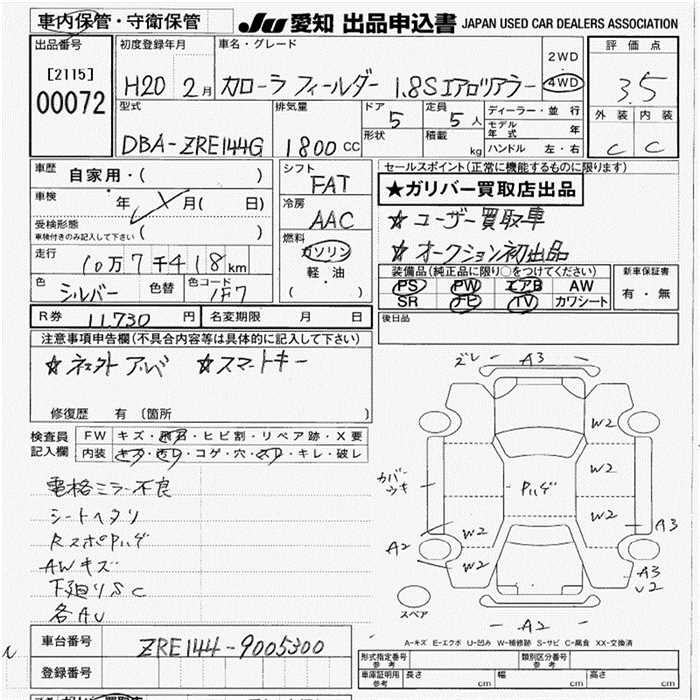 車内保管・守衛保管
JU 愛知 出品申込書 JAPAN USED CAR DEALERS ASSOCIATION
出品番号
[2115]
00072
初度登録年月
H20 2月
車名・グレード
カローラ フィールダー 1.8S エアロツアラー
2WD
4WD
評価点
3.5
外装 内装
C C
型式
DBA-ZRE144G
排気量
1800 CC
ドア 5
形状
定員 5人
積載 kg
ディーラー・並行
モデル年式 年
ハンドル 左・右
車歴
自家用・( )
車検
年 月( 日)
受検形態
車検付きのみ記入して下さい ( )
走行
10万7千418km
色
シルバー
色替
色コード
1F7
シフト
FAT
冷房
AAC
燃料
ガソリン
軽・油
( ・ )
セールスポイント(正常に機能するものに限ります)
★ガリバー買取店出品
☆ユーザー買取車
☆オークション初出品
装備品(純正品に限り○をつけてください)
PS PW エアB AW
SR ナビ TV カワシート
新車保証書
有・無
R券 11,730 円
名変期限 月 日
後日品
注意事項申告欄(不具合内容等は具体的に記入して下さい)
☆スマートキー
修復歴 有 (箇所 )
検査員
記入欄
FW キズ・飛石・ヒビ割・リペア跡・X要
内装 キズ・汚レ・コゲ・穴・スレ・キレ・破レ
電格ミラー不良
シートヘタリ
RスポPハゲ
AWキズ
下廻りSC
各AU
ズレ A3
W2
W2
カバーウキ
Pハゲ
W2
W2
A3
A2
W2
A3
U2
スペア
A2
A-キズ E-エクボ U-凹み W-補修跡 S-サビ C-腐食 XX-交換済
車台番号 ZRE144-9005300
登録番号
形式指定番号 参考
類別区分番号 参考
車庫証明用 参考 長さ cm 幅 cm 高さ cm